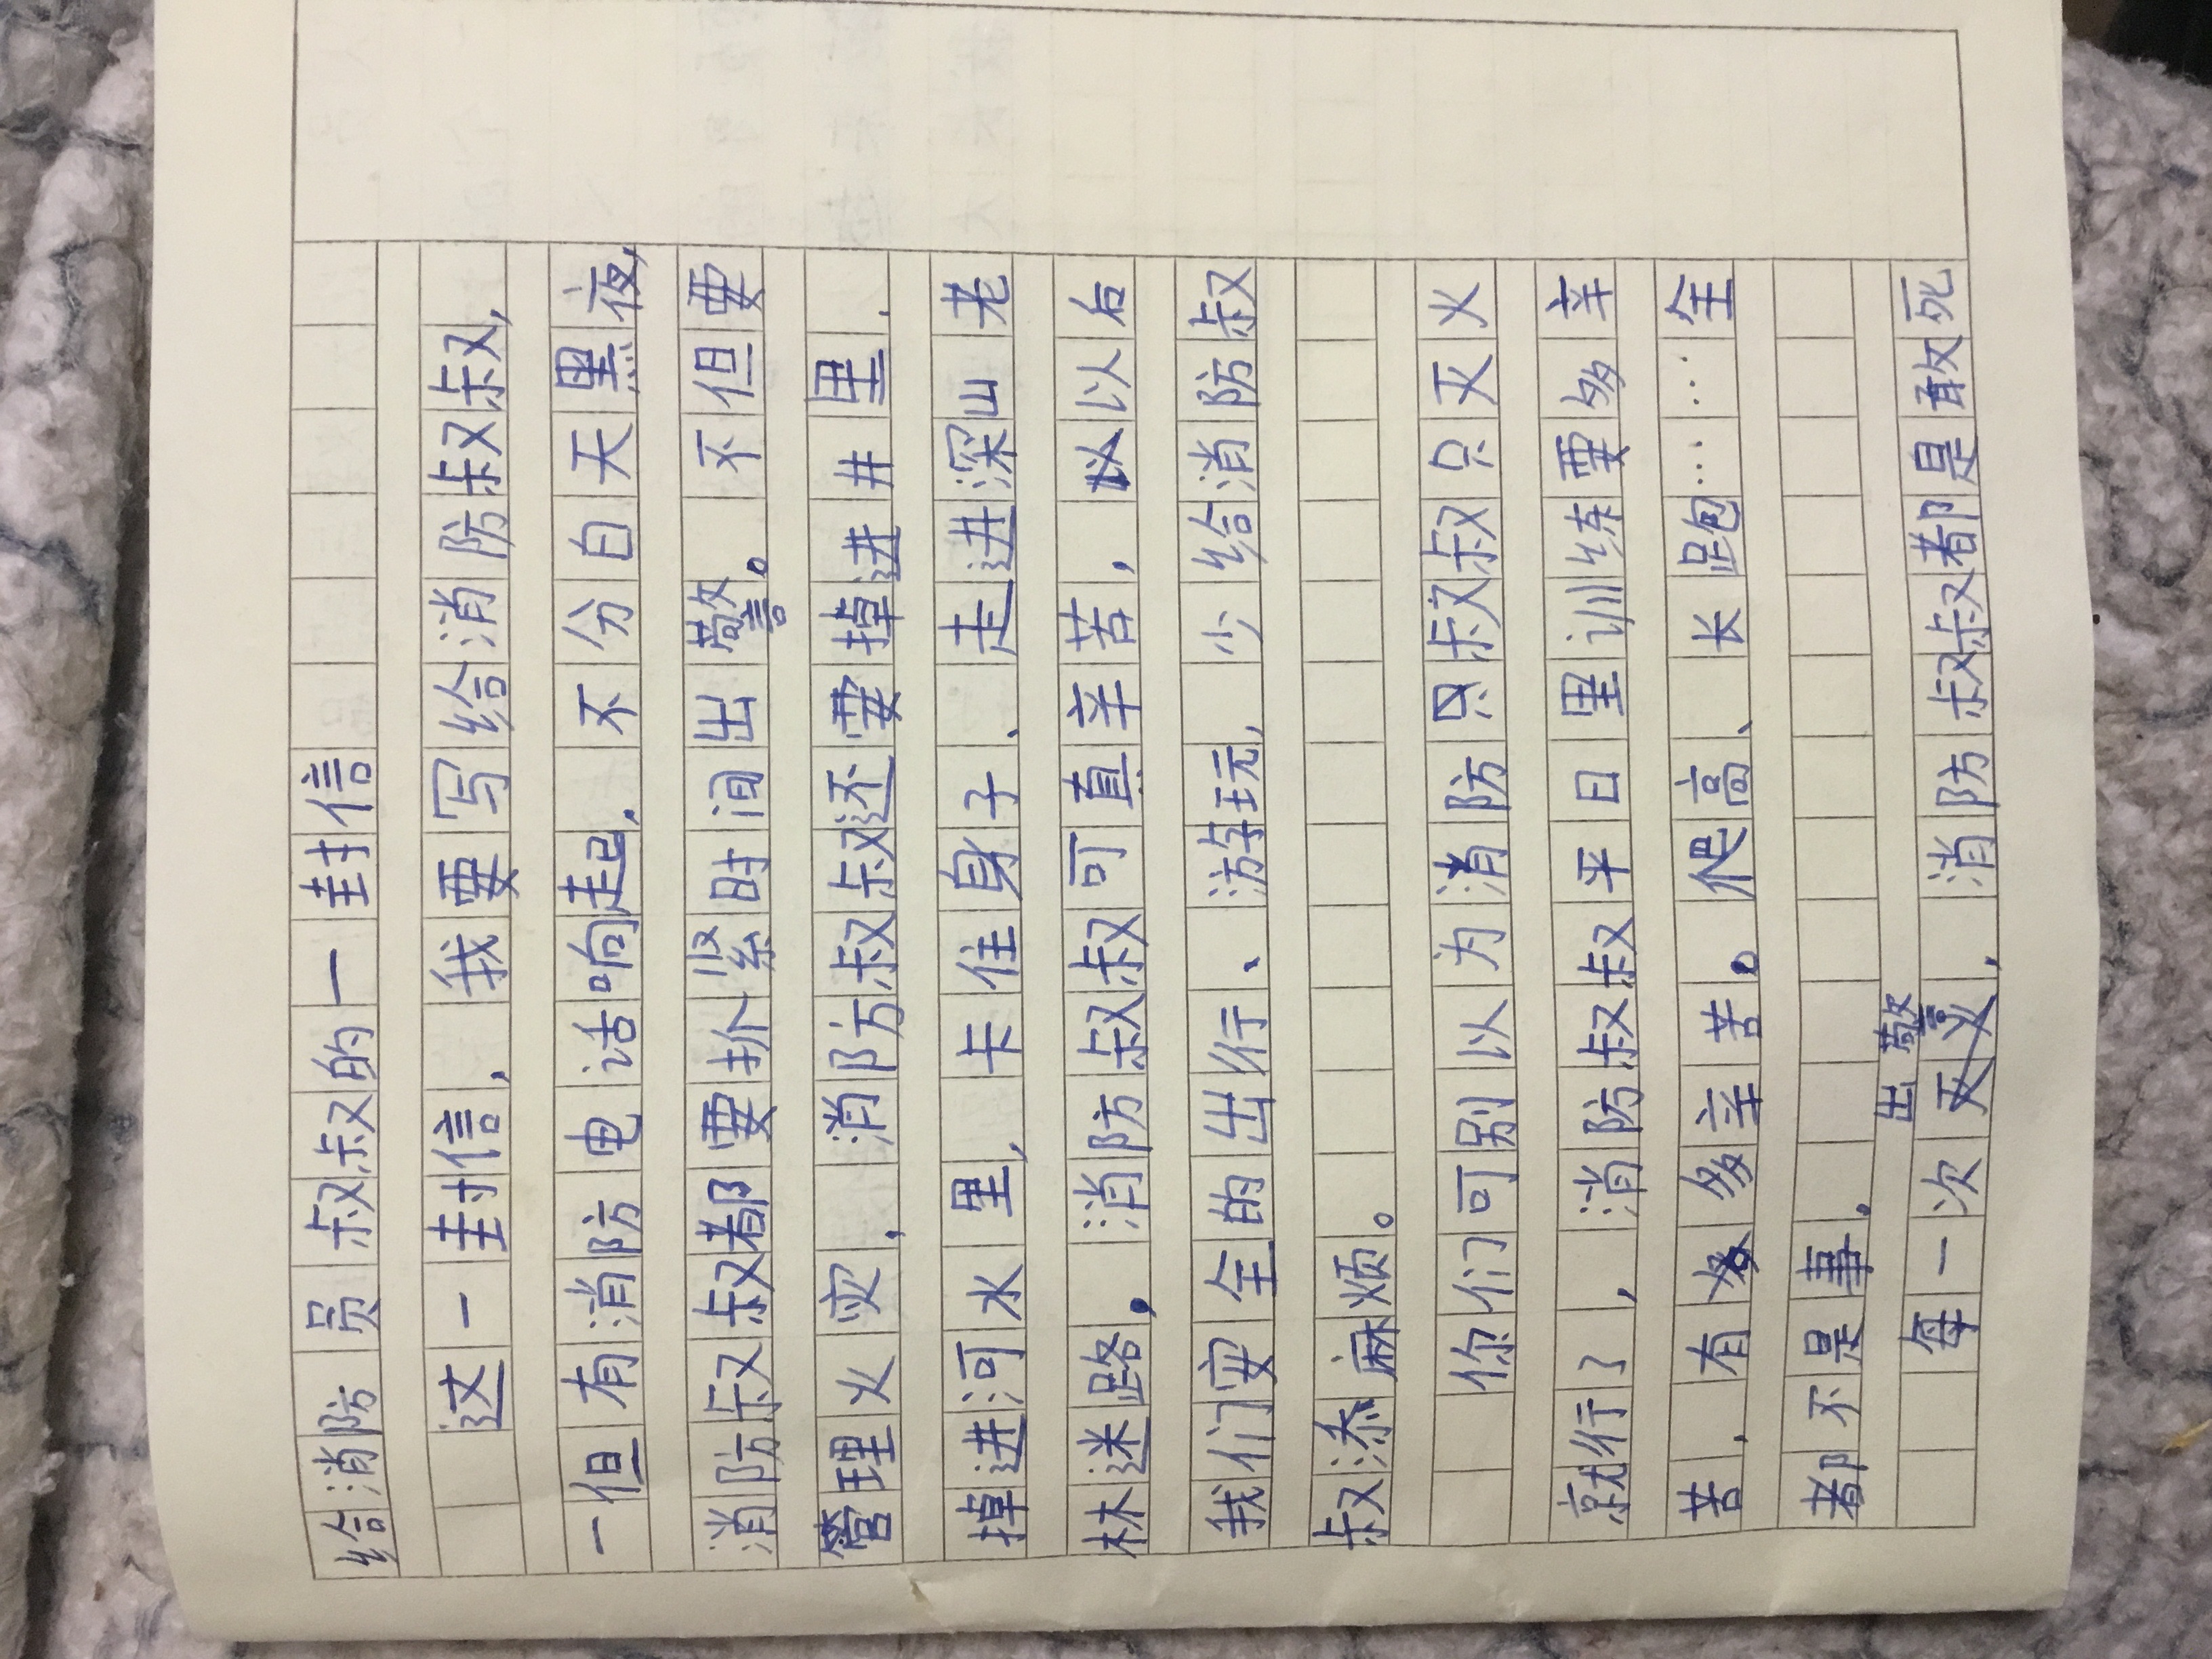 给消防员叔叔的一封信
这一封信，我要写给消防叔叔，
一但有消防电话响起，不分白天黑夜，
消防叔叔都要抓紧时间出警。不但要
管理火灾，消防叔叔还要掉进井里、
掉进河水里，卡住身子、走进深山老
林迷路。消防叔叔可真辛苦，以后
我们安全的出行、游玩，少给消防叔
叔添麻烦。
你们可别以为消防叔叔只灭火
就行了，消防叔叔平日里训练要多辛
苦，有多辛苦。爬高、长跑……全
都不是事。
每一次出警，消防叔叔都是敢死